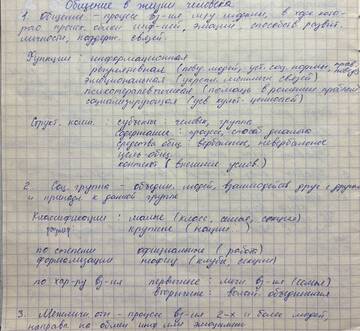 Общение в жизни человека
1. Общение - процесс вз-ия между людьми, в ходе кото-
рого происх. обмен инф-ией, эмоции, способств. развит.
личности, поддерж. связей.
Функции: информационная
регулятивная (повед. людей, уст. соц. нормы, прав. повед)
эмоциональная (укрепл. межличн. связей)
психотерапевтическая (помощь в решении проблем)
социализирующая (усв. культ. ценностей)
Структ. комп.: субъекты: человек, группа
содержание: процесс, способ диалога
средства общ: вербальное, невербальное
цель общ.
контекст (внешние услов.)
2. Соц. группа - объедин. людей, взаимодейств. друг с другом
и принадл. к данной группе
Классификация: малые (класс, семья, секция)
размер: крупные (нации)
по степени официальные (работа)
формализации неофиц. (клубы, секции)
по хар-ру вз-ия первичные: личн. вз-ия (семья)
вторичные: объединения
3. Межличн. отн - процесс вз-ия 2-х и более людей,
направл. на обмен инф. или